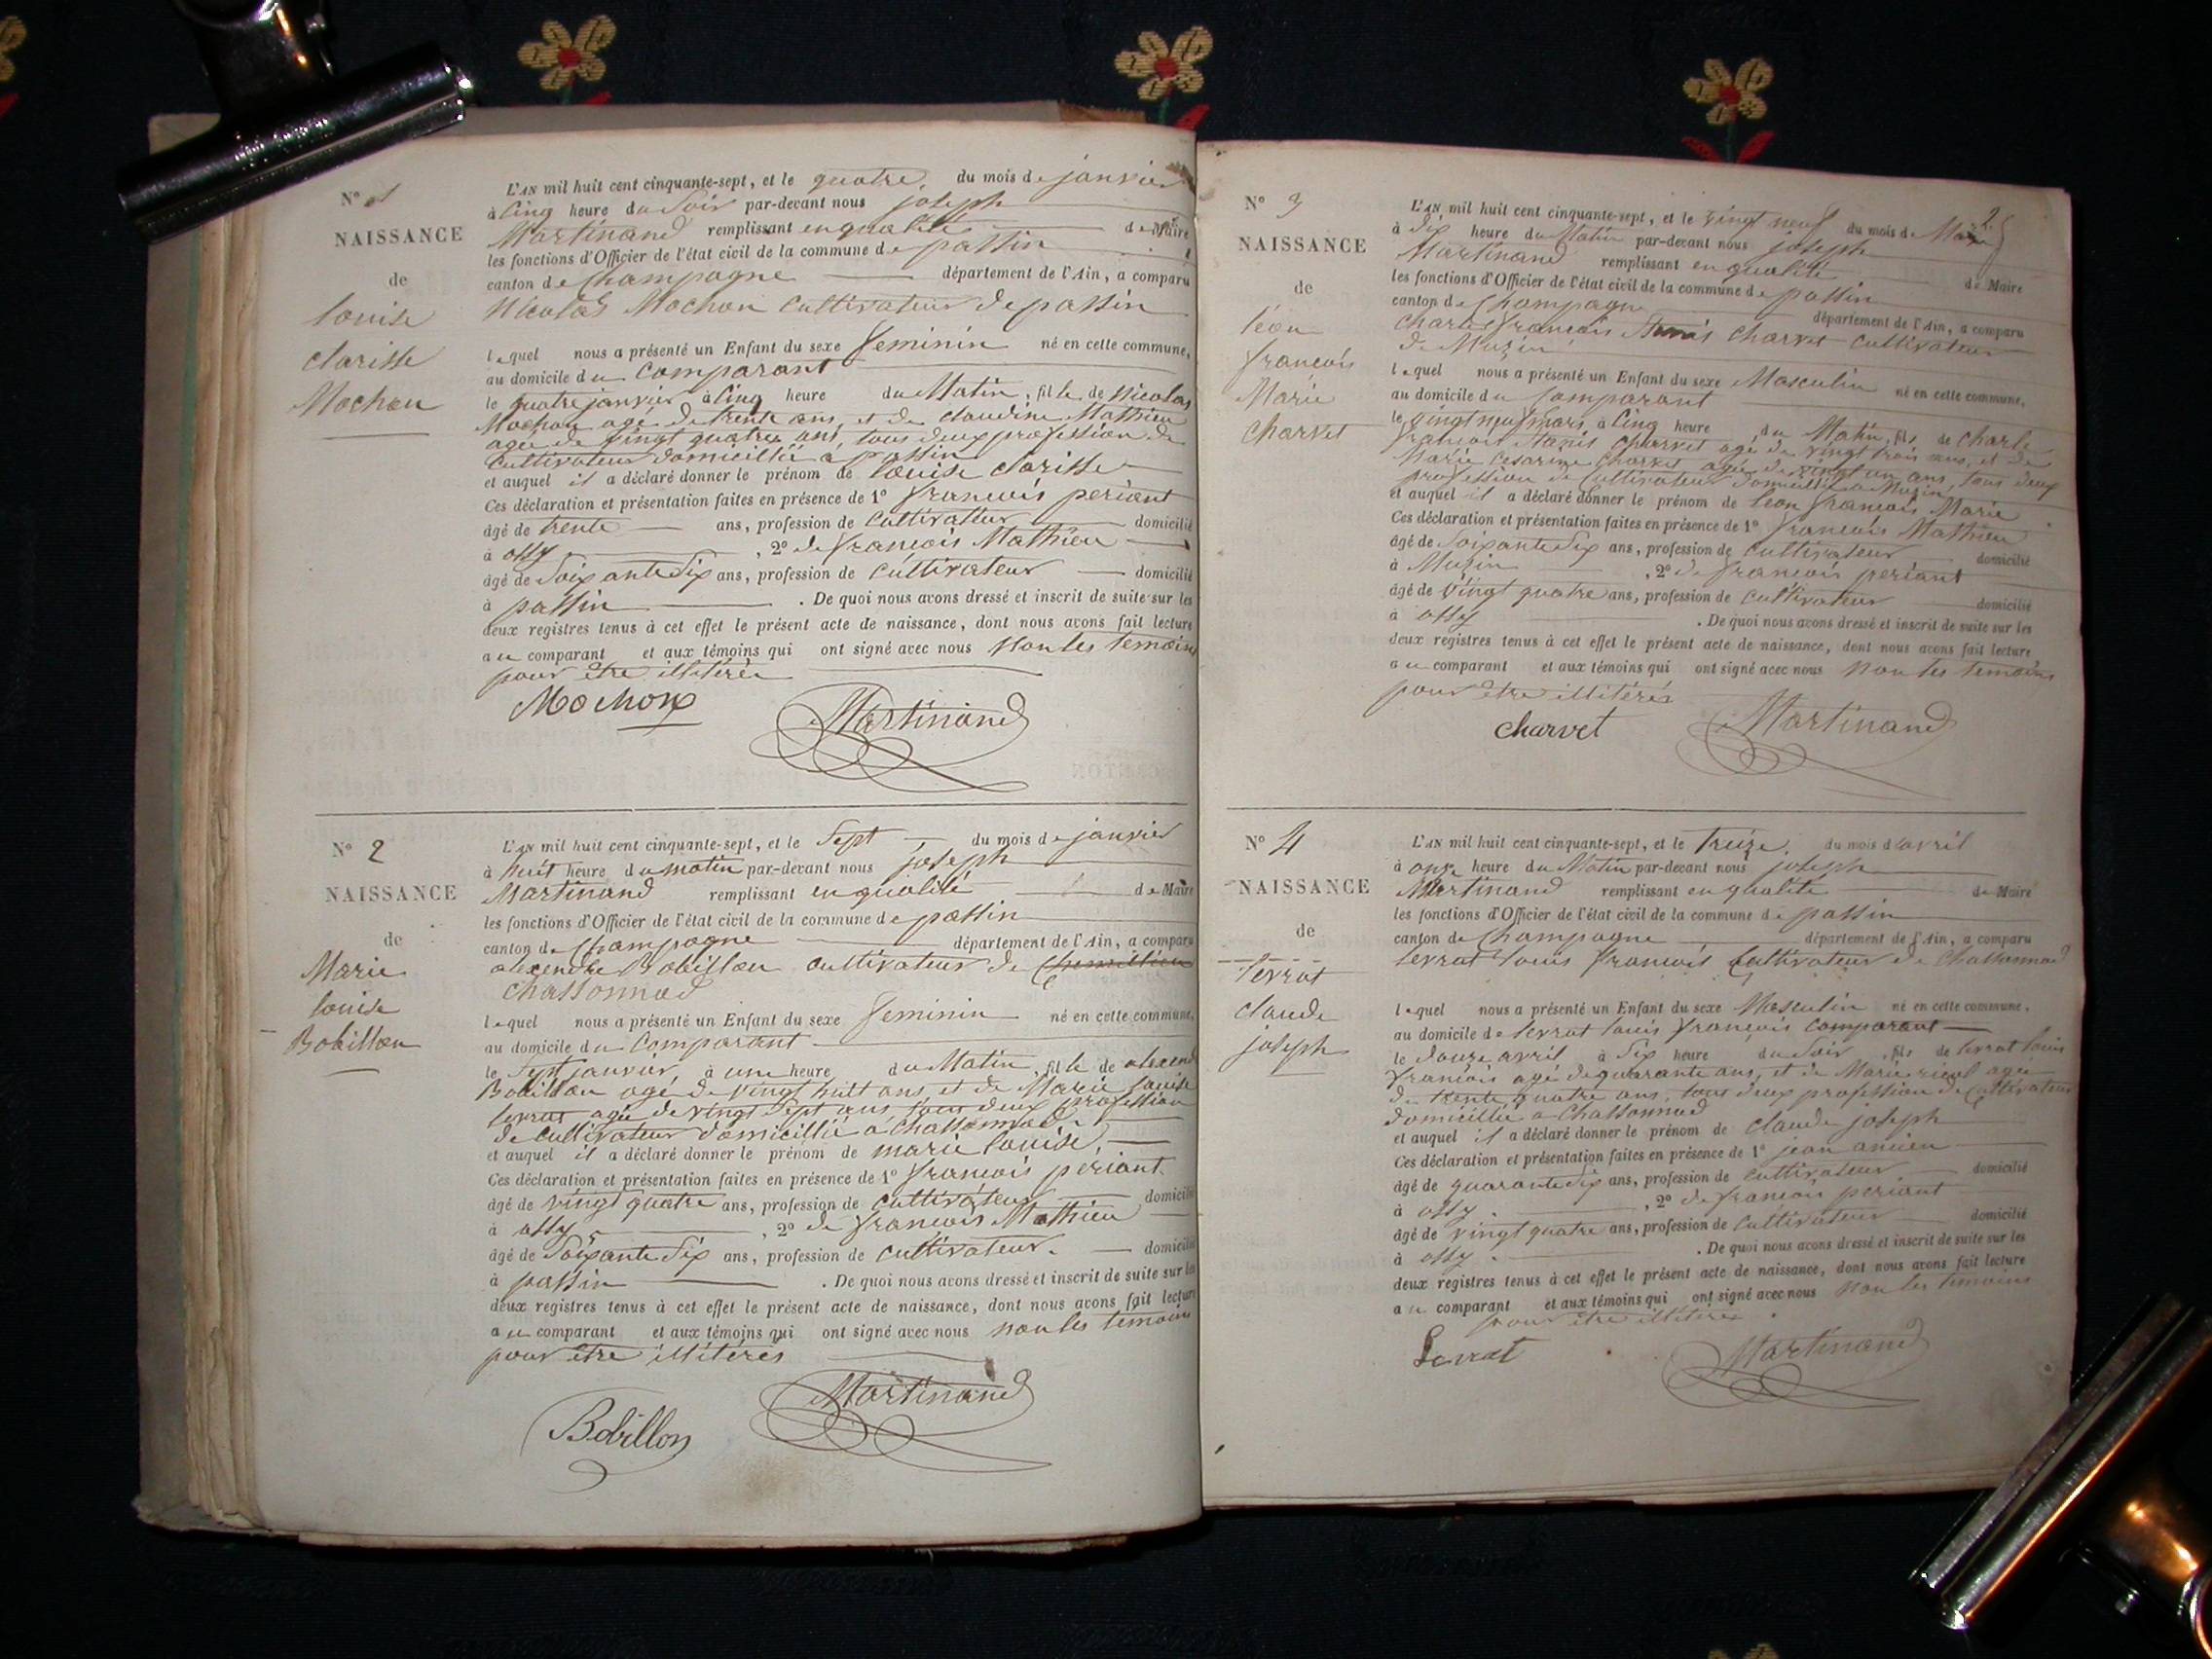 N° 1
NAISSANCE
de
louise
clarisse
Mochon
L'AN mil huit cent cinquante-sept, et le quatre, du mois de janvier
à cinq heure du Soir par-devant nous joseph
Martinand remplissant en qualité de Maire
les fonctions d'Officier de l'état civil de la commune de passin
canton de Champagne département de l'Ain, a comparu
Nicolas Mochon cultivateur de passin
lequel nous a présenté un Enfant du sexe feminin né en cette commune,
au domicile du Comparant
le quatre janvier à cinq heure du Matin, fille de Nicolas
Mochon agé de trente ans, et de claudine Mathieu
agée de vingt quatre ans, tous deux profession de
Cultivateur domicillié a passin
et auquel il a déclaré donner le prénom de louise clarisse
Ces déclaration et présentation faites en présence de 1° francois periant
âgé de trente ans, profession de Cultivateur domicilié
à ossy , 2° de francois Mathieu
âgé de Soixante Six ans, profession de cultivateur domicilié
à passin . De quoi nous avons dressé et inscrit de suite sur les
deux registres tenus à cet effet le présent acte de naissance, dont nous avons fait lecture
au comparant et aux témoins qui ont signé avec nous non les temoins
pour être illitérés
Mochon
Martinand
N° 2
NAISSANCE
de
Marie
louise
Bobillon
L'AN mil huit cent cinquante-sept, et le Sept du mois de janvier
à huit heure du matin par-devant nous joseph
Martinand remplissant en qualité de Maire
les fonctions d'Officier de l'état civil de la commune de passin
canton de Champagne département de l'Ain, a comparu
alexendre Bobillon cultivateur de
chassonnod
lequel nous a présenté un Enfant du sexe feminin né en cette commune,
au domicile du Comparant
le Sept janvier à une heure du Matin, fille de alexend
Bobillon agé de vingt huit ans et de Marie louise
levrat agée de vingt Sept ans tous deux profession
de cultivateur domicillié a Chassonnod
et auquel il a déclaré donner le prénom de marie louise,
Ces déclaration et présentation faites en présence de 1° francois periant
âgé de vingt quatre ans, profession de cultivateur domicilié
à ossy , 2° de francois Mathieu
âgé de Soixante Six ans, profession de cultivateur. domicilié
à passin . De quoi nous avons dressé et inscrit de suite sur les
deux registres tenus à cet effet le présent acte de naissance, dont nous avons fait lecture
au comparant et aux témoins qui ont signé avec nous non les temoins
pour être illitérés
Bobillon
Martinand
2.
N° 3
NAISSANCE
de
léon
françois
Marie
Charvet
L'AN mil huit cent cinquante-sept, et le vingt neuf du mois de Mars
à dix heure du Matin par-devant nous joseph
Martinand remplissant en qualité de Maire
les fonctions d'Officier de l'état civil de la commune de passin
canton de Champagne département de l'Ain, a comparu
Charle francois charvet cultivateur
de Muzin
lequel nous a présenté un Enfant du sexe Masculin né en cette commune,
au domicile du Comparant
le vingt neuf mars, à cinq heure du Matin, fils de Charle
francois Charvet agé de vingt trois ans, et de
Marie Cesarine Charvet agée de vingt un ans, tous deux
profession de Cultivateur domicillié a Muzin
et auquel il a déclaré donner le prénom de leon francois Marie
Ces déclaration et présentation faites en présence de 1° francois Mathieu
âgé de Soixante Six ans, profession de cultivateur domicilié
à Muzin , 2° de francois periant
âgé de vingt quatre ans, profession de cultivateur domicilié
à ossy . De quoi nous avons dressé et inscrit de suite sur les
deux registres tenus à cet effet le présent acte de naissance, dont nous avons fait lecture
au comparant et aux témoins qui ont signé avec nous non les temoins
pour être illitérés
charvet
Martinand
N° 4
NAISSANCE
de
levrat
claude
joseph
L'AN mil huit cent cinquante-sept, et le treize, du mois d'avril
à onze heure du Matin par-devant nous joseph
Martinand remplissant en qualité de Maire
les fonctions d'Officier de l'état civil de la commune de passin
canton de Champagne département de l'Ain, a comparu
levrat louis francois Cultivateur de Chassonnod
lequel nous a présenté un Enfant du sexe Masculin né en cette commune,
au domicile de levrat louis françois comparant
le douze avril à Six heure du Soir, fils de levrat louis
françois agé de quarante ans, et de Marie agée
de trente quatre ans, tous deux profession de Cultivateur
domicillié a Chassonnod
et auquel il a déclaré donner le prénom de claude joseph
Ces déclaration et présentation faites en présence de 1° jean ancien
âgé de quarante Six ans, profession de cultivateur domicilié
à ossy. , 2° de francois periant
âgé de vingt quatre ans, profession de Cultivateur domicilié
à ossy. . De quoi nous avons dressé et inscrit de suite sur les
deux registres tenus à cet effet le présent acte de naissance, dont nous avons fait lecture
au comparant et aux témoins qui ont signé avec nous non les temoins
pour être illitérés
Levrat
Martinand